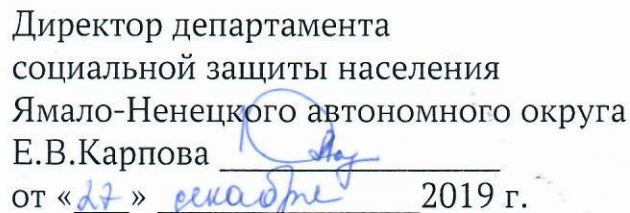 Директор департамента
социальной защиты населения
Ямало-Ненецкого автономного округа
Е.В.Карпова
от «27» декабря 2019 г.